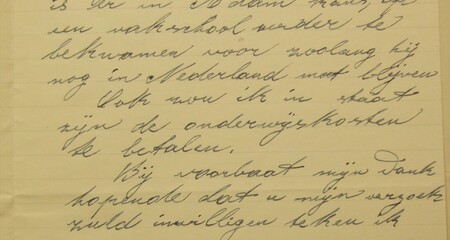 is er in A'dam kans, op
een vakschool verder te
bekwamen voor zoolang hij
nog in Nederland met blijven
Ook zou ik in staat
zijn de onderwijskosten
te betalen.
Bij voorbaat mijn Dank
hopende dat u mijn verzoek
zuld inwilligen teken ik